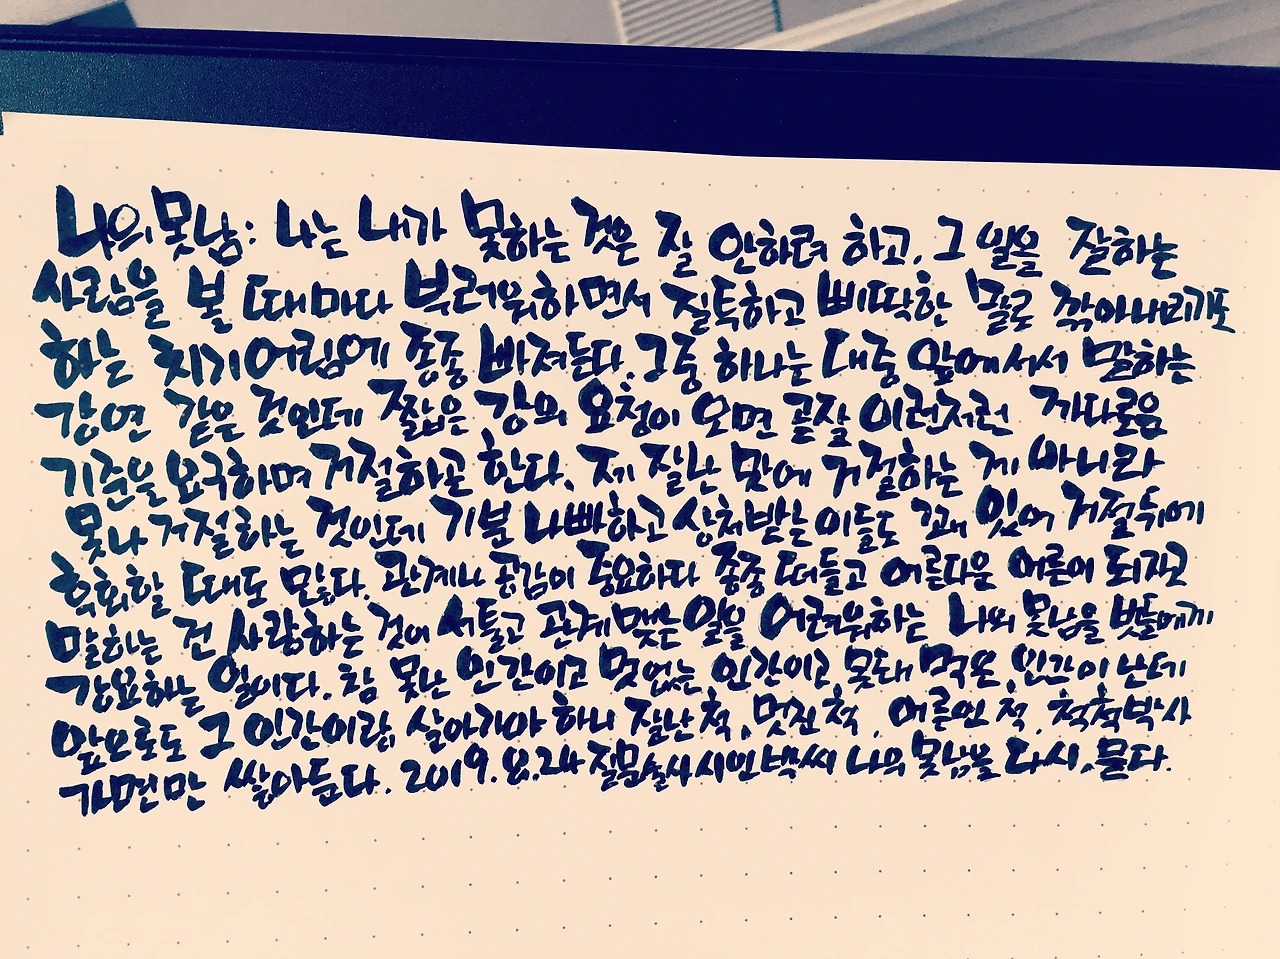 나의 못남: 나는 내가 못하는 것은 잘 안하려 하고, 그 일을 잘하는
사람을 볼 때마다 부러워하면서 질투하고 삐딱한 말로 깎아내리기도
하는 치기어림에 종종 빠져든다. 그중 하나는 대중 앞에 서서 말하는
강연 같은 것인데 짧은 강의 요청이 오면 곧잘 이런저런 까다로움
기준을 요구하며 거절하곤 한다. 제 잘난 맛에 거절하는 게 아니라
못나 거절하는 것인데 기분 나빠하고 상처받는 이들도 꽤 있어 거절 뒤에
후회할 때도 많다. 관계나 공감이 중요하다 종종 떠들고 어른다운 어른이 되자고
말하는 건 사랑하는 것이 서툴고 관계맺는 일을 어려워하는 나의 못남을 벗들에게
강요하는 일이다. 참 못난 인간이고 멋없는 인간이고 못돼 먹은 인간이 난데
앞으로도 그 인간이랑 살아가야 하니 잘난 척, 멋진 척, 어른인 척, 척척박사
가면만 쌓아둔다. 2019. 8. 24 질문술사 시인박씨 나의 못남을 다시, 묻다.